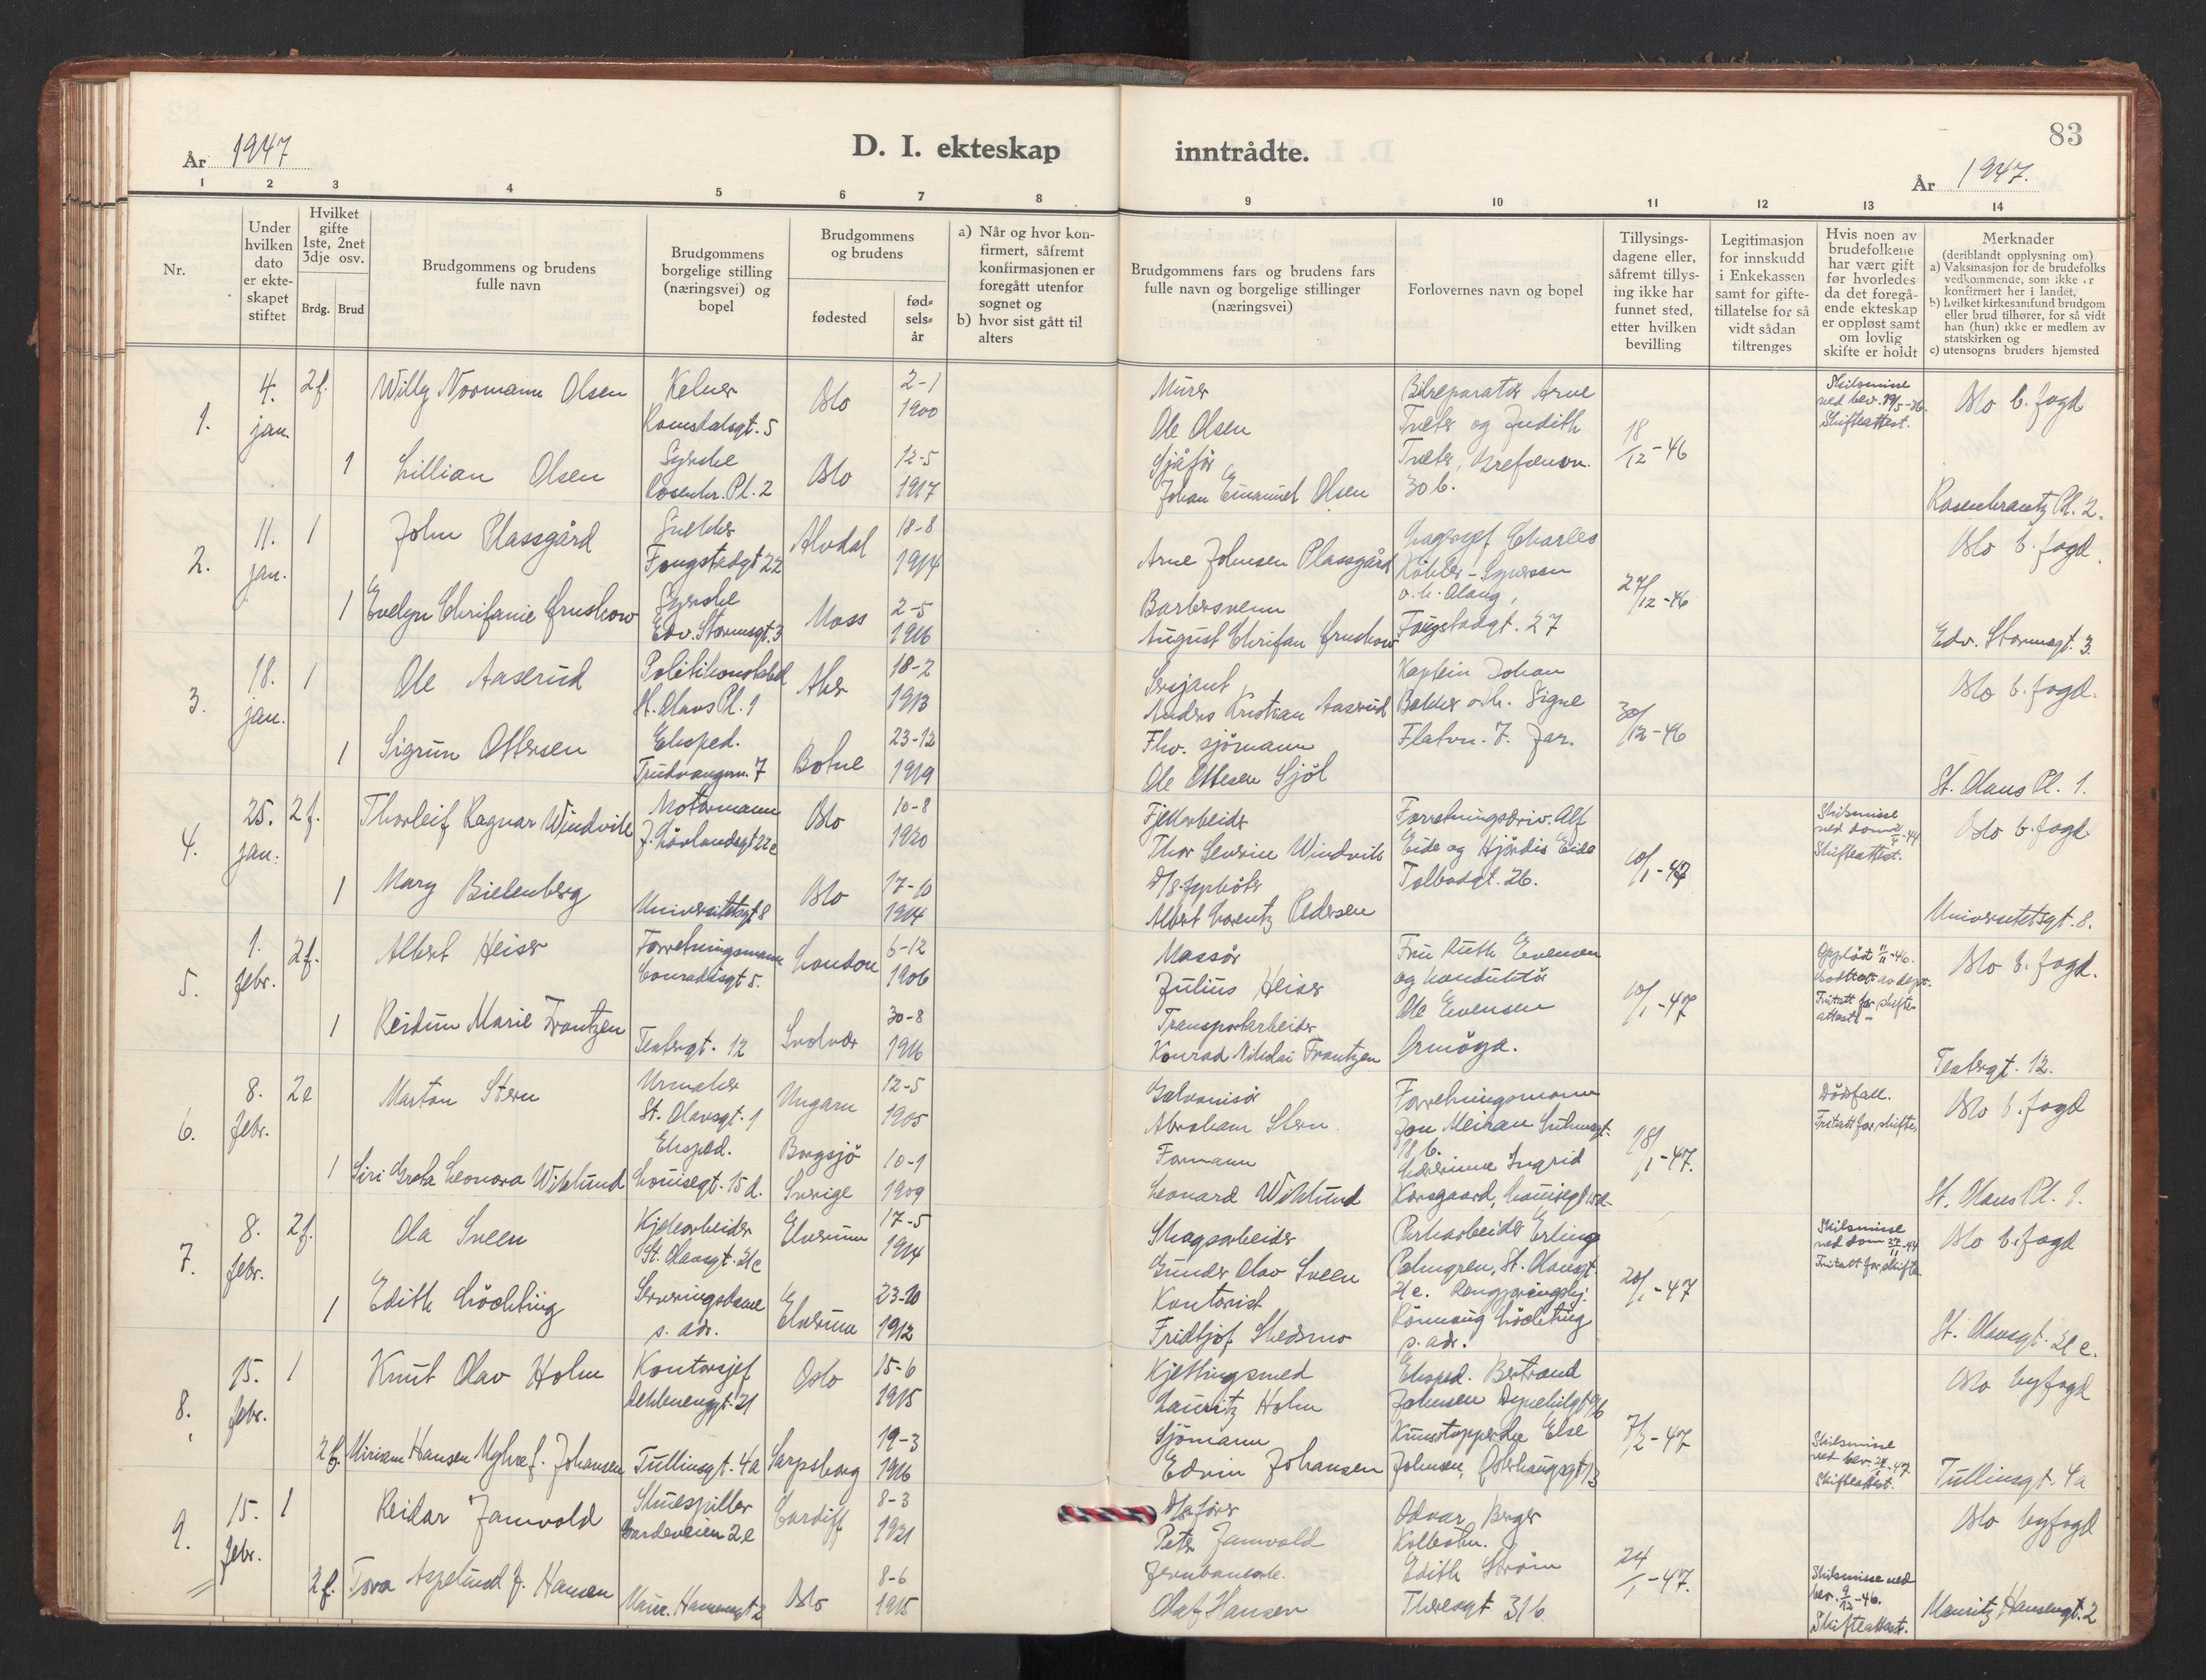 År 1947
D. I. ekteskap inntrådte.
83
År 1947.
1 2 3 4 5 6 7 8 9 10 11 12 13 14
Nr.
Under hvilken dato er ekte- skapet stiftet
Hvilket gifte 1ste, 2net 3dje osv.
Brdg. Brud
Brudgommens og brudens fulle navn
Brudgommens borgelige stilling (næringsvei) og bopel
Brudgommens og brudens
fødested
fød- sels- år
a) Når og hvor kon- firmert, såfremt konfirmasjonen er foregått utenfor sognet og
b) hvor sist gått til alters
Brudgommens fars og brudens fars fulle navn og borgelige stillinger (næringsvei)
Forlovernes navn og bopel
Tillysings- dagene eller, såfremt tillys- ing ikke har funnet sted, etter hvilken bevilling
Legitimasjon for innskudd i Enkekassen samt for gifte- tillatelse for så vidt sådan tiltrenges
Hvis noen av brudefolkene har vært gift før hvorledes da det foregå- ende ekteskap er oppløst samt om lovlig skifte er holdt
Merknader
(deriblandt opplysning om)
a) Vaksinasjon for de brudefolks vedkommende, som ikke er konfirmert her i landet,
b) hvilket kirkesamfund brudgom eller brud tilhører, for så vidt han (hun) ikke er medlem av statskirken og
c) utensogns bruders hjemsted
1. 4. jan. 2f. Willy Normann Olsen Kelner Romsdalsgt. 5 Oslo 2-1 1900
Murer Ole Olsen
Bilreparatør Arne Tveter og Judith Tveter, Grefsenvn. 30 b.
18/12-46
Skilsmisse ved bev. 29/5-36. Skifteattest.
Oslo b. fogd
1 Lillian Olsen Syerske Rosenkr. Pl. 2 Oslo 12-5 1917
Sjåfør Johan Emanuel Olsen
Rosenkrantz Pl. 2.
2. 11. jan. 1 John Plassgård Snekker Fougstadgt 22 Alvdal 18-8 1914
Arne Johnsen Plassgård
Lagersjef Charles Köhler-Syversen o.h. Alaug, Fougstadgt. 27
27/12-46
Oslo b. fogd.
1 Evelyn Chrifanie Gruskow Syerske Edv. Stormsgt. 3 Moss 2-5 1916
Barbersvenn August Chrifan Gruskow
Edv. Stormsgt. 3.
3. 18. jan. 1 Ole Aaserud Politikonstabel St. Olavs Pl. 1 Aker 18-2 1913
Sersjant Anders Kristian Aaserud
Kaptein Johan Bakker o.h. Signe Flatvn. 7. Jar.
30/12-46
Oslo b. fogd.
1 Sigrun Ottersen Eksped. Trudvangvn. 7 Botne 23-12 1919
Fhv. sjömann Ole Ottesen Sjöl
St. Olavs Pl. 1.
4. 25. jan. 2f. Thorleif Ragnar Windvik Motormann J. Løvlandsgt 22c Oslo 10-8 1920
Fjellarbeider Thor Severin Windvik
Forretningsdriv. Alf Eide og Hjördis Eide Tolbodgt. 26.
10/1-47
Skilsmisse ved dom -44 Skifteattest.
Oslo b. fogd
1 Mary Bielenberg Universitetsgt 8 Oslo 17-10 1914
D/S. fyrböter Albert Lorentz Pedersen
Universitetsgt. 8.
5. 1. febr. 2f. Albert Heiser Forretningsmann Conradisgt 5. London 6-12 1906
Massör Julius Heiser
Fru Ruth Evensen og konduktör Ole Evensen Ormöya.
10/1-47
Oppløst 11/11-46. Godtatt av dept. Fritatt for skifte- attest.-
Oslo b. fogd.
1 Reidun Marie Frantzen Teatergt. 12 Svolvær 30-8 1916
Transportarbeider Konrad Nikolai Frantzen
Teatergt. 12.
6. 8. febr. 2e Marton Stern Urmaker St. Olavsgt. 1 Ungarn 12-5 1905
Galvanisör Abraham Stern
Forretningsmann Jon Meiran Suhmsgt. 18 b. Lærerinne Ingrid Korsgaard, Louisegt 15 d.
18/1-47.
Dödsfall. Fritatt for skifte.
Oslo b. fogd
1 Siri Greta Leonora Wiklund Eksped. Louisegt. 15 d. Borgsjö Sverige 10-1 1909
Formann Leonard Wiklund
St. Olavs Pl. 1.
7. 8. febr. 2f. Ola Sveen Kjelearbeider St. Olavsgt. 21c Elverum 17-5 1914
Skogsarbeider Gunder Olav Sveen
Parkarbeider Erling Palmgren, St. Olavsgt 21c. Rengjøringshj. Rönnaug Löchting s. adr.
20/1-47
Skilsmisse ved dom 27/11-44 Fritatt for skifte
Oslo b. fogd
1 Edith Löchting Serveringsdame s. adr. Elverum 23-10 1912
Kontorist Fridtjof Skedsmo
St. Olavsgt. 21 c.
8. 15. febr. 1 Knut Olav Holm Kontorsjef Dehlenenggt. 21 Oslo 15-6 1915
Kjettingsmed Lauritz Holm
Eksped. Bertrand Johnsen Dynekilgt 9/6 Kunststopperske Else Johnsen, Østerhausgt 13
7/2-47
Oslo byfogd
2f. Miriam Hansen Myhre f. Johansen Tullinsgt. 4a Sarpsborg 19-3 1916
Sjömann Edvin Johansen
Skilsmisse ved bev. -47 Skifteattest.
Tullinsgt. 4a
9. 15. febr. 1 Reidar Jamvold Skuespiller Gardeveien 2c Cardiff 8-3 1921
Peter Jamvold
Odvar Berger Kolbotn. Edith Ström Theresgt 31b
24/1-47.
Oslo byfogd
2f. Tova Aspelund f. Hansen Maur. Hansensgt 2 Oslo 8-6 1915
Jernbanearb. Olaf Hansen
Skilsmisse ved bev. 9/12-46. Skifteattest.
Mauritz Hansensgt. 2